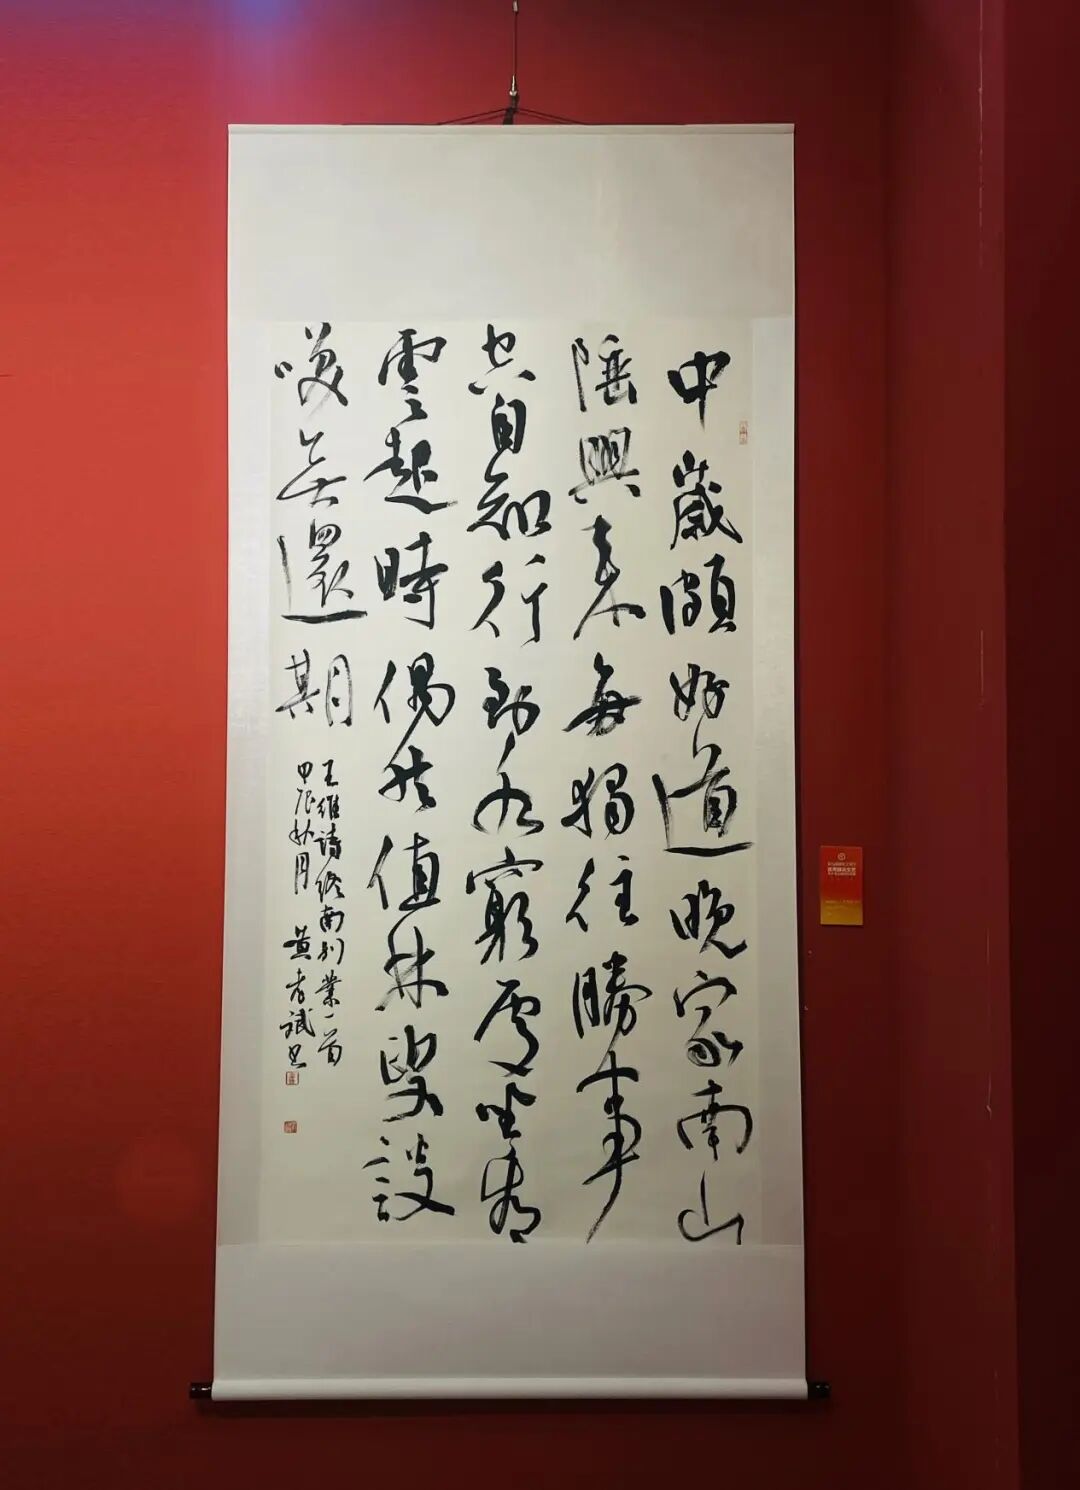 中歲頗好道晚家南山
陲興来每獨往勝事
空自知行到水窮處坐看
雲起時偶然值林叟談
咲無還期
王維詩終南别業一首
甲辰秋月 黄孝斌書